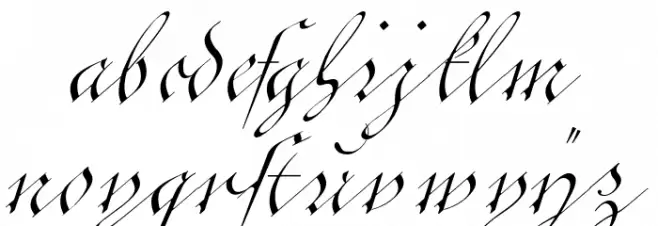 abcdefghijklm
nopqrſtuvwxÿz